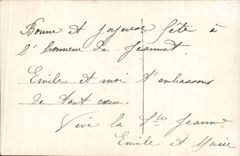 Bonne et Joyeuse fête à
l'honneur de Jeannot.
Emile et moi t'embrassons
de tout cœur.
Vive la Ste Jeanne
Emile et